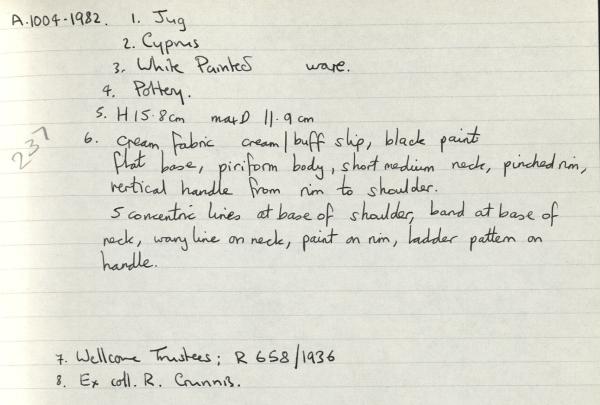 A.1004-1982. 1. Jug
2. Cyprus
3. White Painted ware.
4. Pottery.
5. H 15.8cm maxD 11.9cm
237
6. cream fabric cream/buff slip, black paint
flat base, piriform body, short medium neck, pinched rim,
vertical handle from rim to shoulder.
5 concentric lines at base of shoulder, band at base of
neck, wavy line on neck, paint on rim, ladder pattern on
handle.
7. Wellcome Trustees; R 658/1936
8. Ex coll. R. Gunnis.